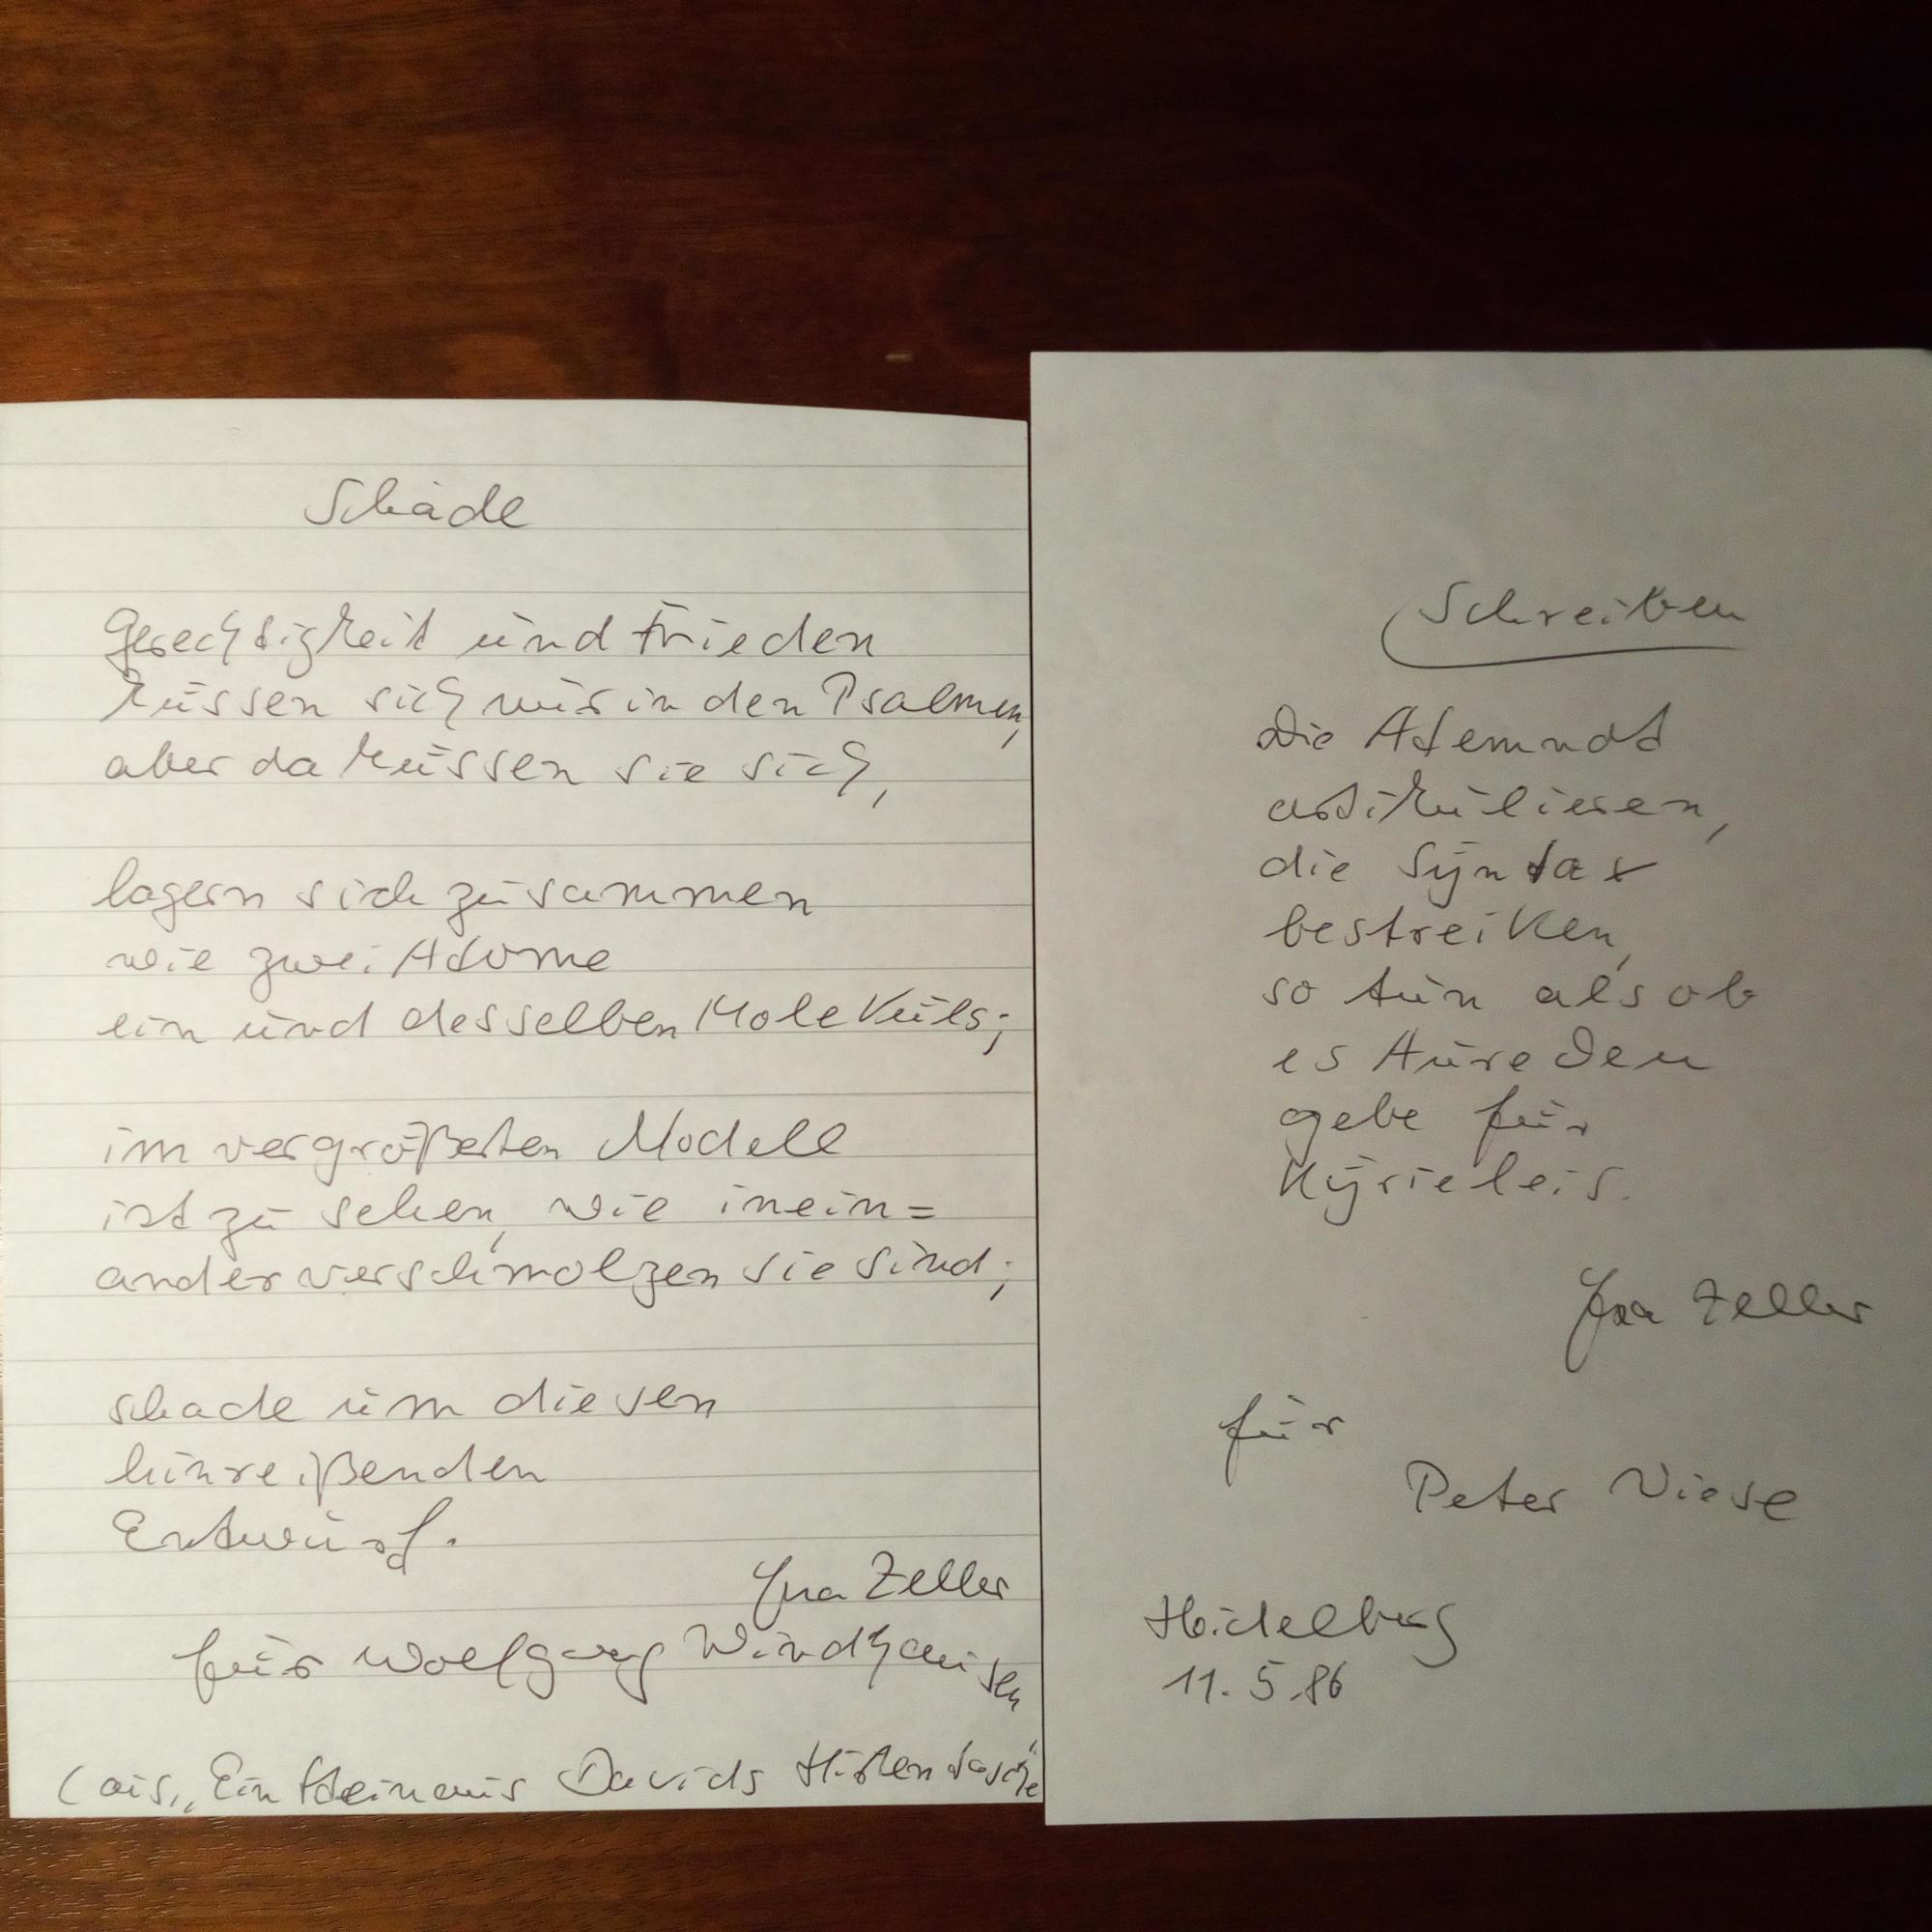 Schade
Gerechtigkeit und Frieden
küssen sich nur in den Psalmen,
aber da küssen sie sich,
lagern sich zusammen
wie zwei Atome
ein und desselben Moleküls;
im vergrößerten Modell
ist zu sehen, wie inein=
ander verschmolzen sie sind;
schade um diesen
hinreißenden
Entwurf.
Eva Zeller
für Wolfgang Windhausen
(aus „Ein Stein aus Davids Hirtentasche"
Schreiben
Die Atemnot
artikulieren,
die Syntax
bestreiken,
so tun als ob
es Aureden
gebe für
Kyrieleis.
Eva Zeller
für
Peter Niese
Heidelberg
11.5.86